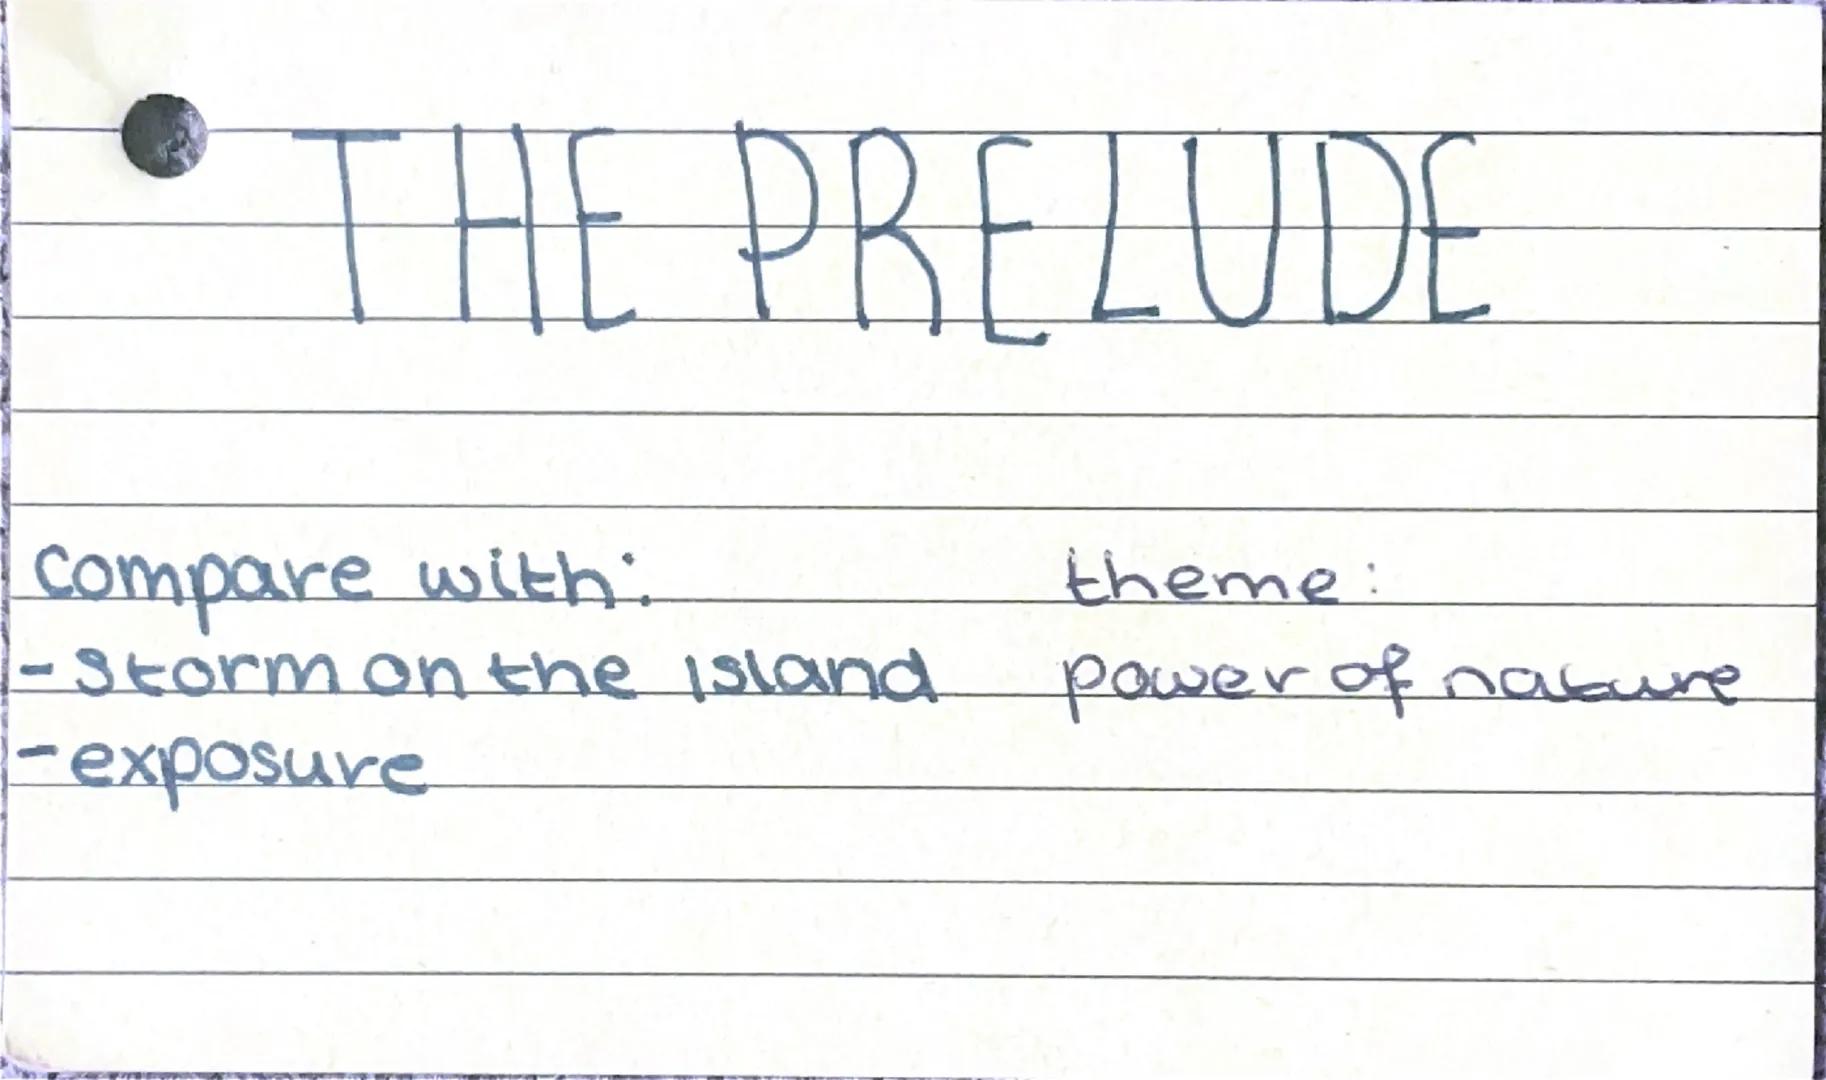 THE PRELUDE
compare with:
- Storm on the island
- exposure
theme:
power of nature